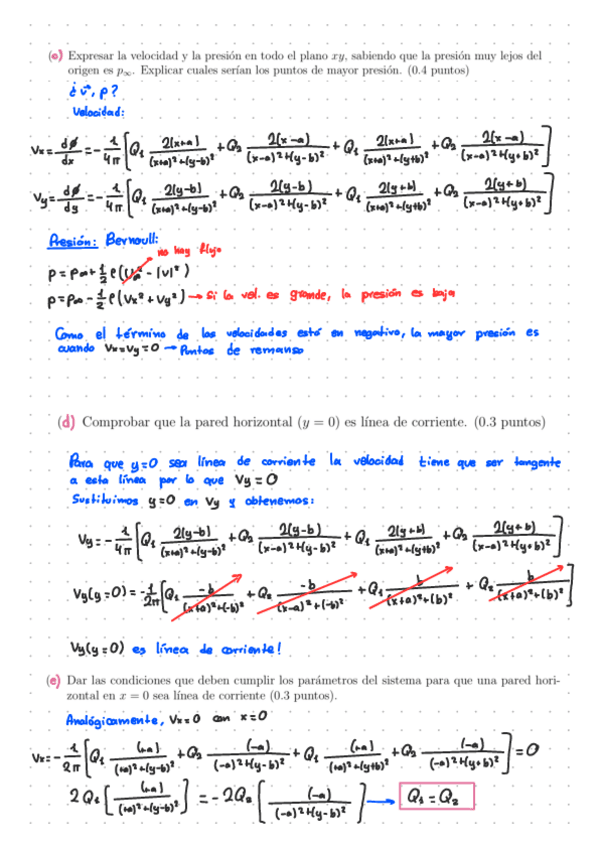 (c) Expresar la velocidad y la presión en todo el plano xy, sabiendo que la presión muy lejos del
origen es p∞. Explicar cuales serían los puntos de mayor presión. (0.4 puntos)
¿ v⃗, p ?
Velocidad:
Vx = dφ/dx = -1/4π [Q1 2(x+a)/((x+a)²+(y-b)²) + Q2 2(x-a)/((x-a)²+(y-b)²) + Q1 2(x+a)/((x+a)²+(y+b)²) + Q2 2(x-a)/((x-a)²+(y+b)²)]
Vy = dφ/dy = -1/4π [Q1 2(y-b)/((x+a)²+(y-b)²) + Q2 2(y-b)/((x-a)²+(y-b)²) + Q1 2(y+b)/((x+a)²+(y+b)²) + Q2 2(y+b)/((x-a)²+(y+b)²)]
Presión: Bernoull:
no hay flujo
p = p∞ + 1/2 ρ (U∞² - |v|²)
p = p∞ - 1/2 ρ (Vx² + Vy²) → si la vel. es grande, la presión es baja
Como el término de las velocidades está en negativo, la mayor presión es
cuando Vx=Vy=0 → Puntos de remanso
(d) Comprobar que la pared horizontal (y = 0) es línea de corriente. (0.3 puntos)
Para que y=0 sea línea de corriente la velocidad tiene que ser tangente
a esta línea por lo que Vy = 0
Sustituimos y=0 en Vy y obtenemos:
Vy = -1/4π [Q1 2(y-b)/((x+a)²+(y-b)²) + Q2 2(y-b)/((x-a)²+(y-b)²) + Q1 2(y+b)/((x+a)²+(y+b)²) + Q2 2(y+b)/((x-a)²+(y+b)²)]
Vy(y=0) = -1/2π [Q1 -b/((x+a)²+(-b)²) + Q2 -b/((x-a)²+(-b)²) + Q1 b/((x+a)²+(b)²) + Q2 b/((x+a)²+(b)²)]
Vy(y=0) es línea de corriente!
(e) Dar las condiciones que deben cumplir los parámetros del sistema para que una pared hori-
zontal en x = 0 sea línea de corriente (0.3 puntos).
Analógicamente, Vx=0 con x=0
Vx = -1/2π [Q1 (+a)/((+a)²+(y-b)²) + Q2 (-a)/((-a)²+(y-b)²) + Q1 (+a)/((+a)²+(y+b)²) + Q2 (-a)/((-a)²+(y+b)²)] = 0
2Q1 [(+a)/((+a)²+(y-b)²)] = -2Q2 [(-a)/((-a)²+(y-b)²)] → Q1 = Q2